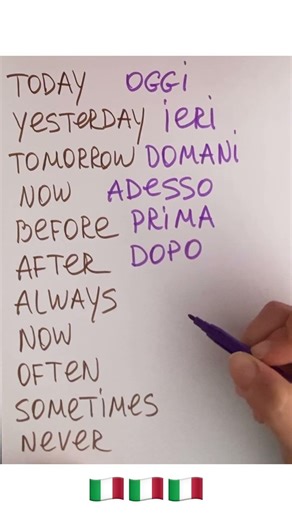 TODAY OGGi
YESTERDAY iERi
TOMORROW DOMANi
NOW ADESSO
BEFORE PRiMA
AFTER DOPO
ALWAYS
NOW
OFTEN
SOMETiMES
NEVER